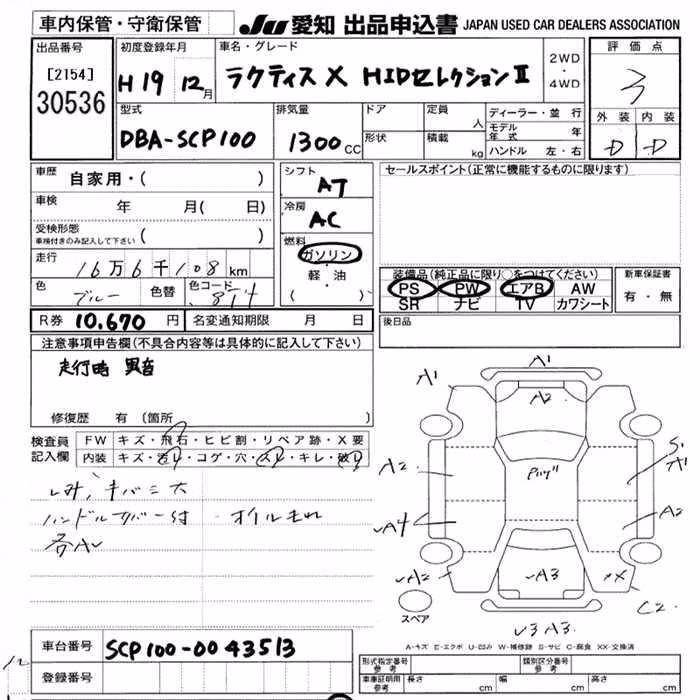 車内保管・守衛保管
JU 愛知 出品申込書 JAPAN USED CAR DEALERS ASSOCIATION
出品番号
[2154]
30536
初度登録年月
H19 12月
車名・グレード
ラクティス X HIDセレクションⅡ
2WD
・
4WD
評価点
3
外装 内装
D D
型式
DBA-SCP100
排気量
1300 CC
ドア
形状
定員 人
積載 kg
ディーラー・並行
モデル年式 年
ハンドル 左・右
車歴 自家用・( )
車検 年 月( 日)
受検形態
車検付きのみ記入して下さい ( )
走行 16万6千108km
色 ブルー 色替 色コード 8T4
シフト
AT
冷房
AC
燃料
ガソリン
・
軽・油
( )
セールスポイント(正常に機能するものに限ります)
装備品(純正品に限り○をつけてください)
PS PW エアB AW
SR ナビ TV カワシート
新車保証書
有・無
R券 10,670円 名変通知期限 月 日
後日品
注意事項申告欄(不具合内容等は具体的に記入して下さい)
走行時 異音
修復歴 有 (箇所 )
検査員記入欄
FW キズ・飛石・ヒビ割・リペア跡・X要
内装 キズ・汚レ・コゲ・穴・スレ・キレ・破レ
しみ、キバミ大
ハンドルカバー付 オイルもれ
各A
A1
A1
A2
S
A1
A2
Pハゲ
A4
A2
A2
A3
X
C2
スペア
3 A3
A-キズ E-エクボ U-凹み W-補修跡 S-サビ C-腐食 XX-交換済
車台番号 SCP100-0043513
登録番号
12
形式指定番号
参考
類別区分番号
参考
車庫証明用
参考
長さ cm 幅 cm 高さ cm